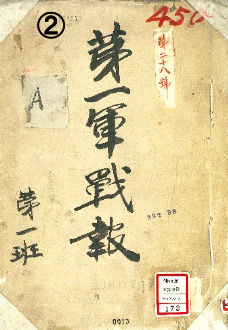 ②
450
第二十八號
A
第一軍戰報
第一班
172
0013